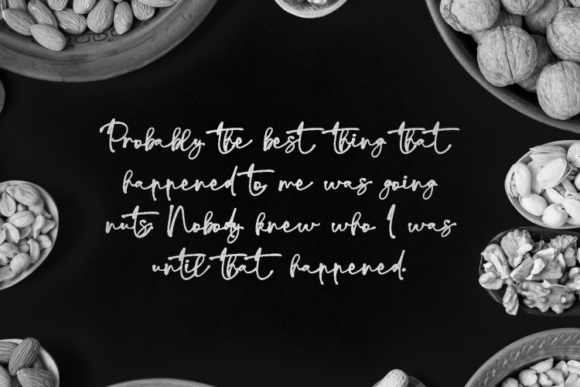 Probably the best thing that
happened to me was going
nuts. Nobody knew who I was
until that happened.